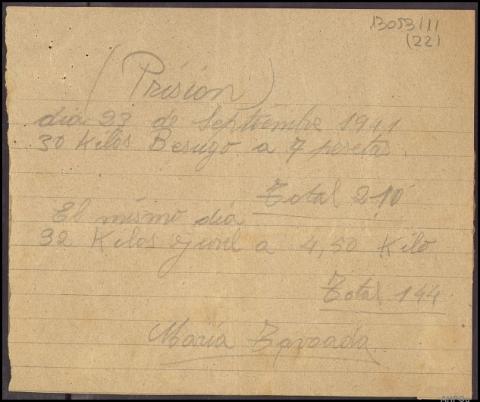 13053/11
(22)
(Prision)
dia 23 de Septiembre 1941
30 Kilos Besugo a 7 pesetas
Total 210
El mismo dia
32 Kilos ojonil a 4,50 Kilo
Total 144
Maria